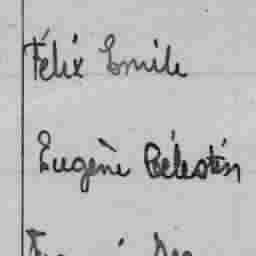 Félix Emile
Eugène Célestin